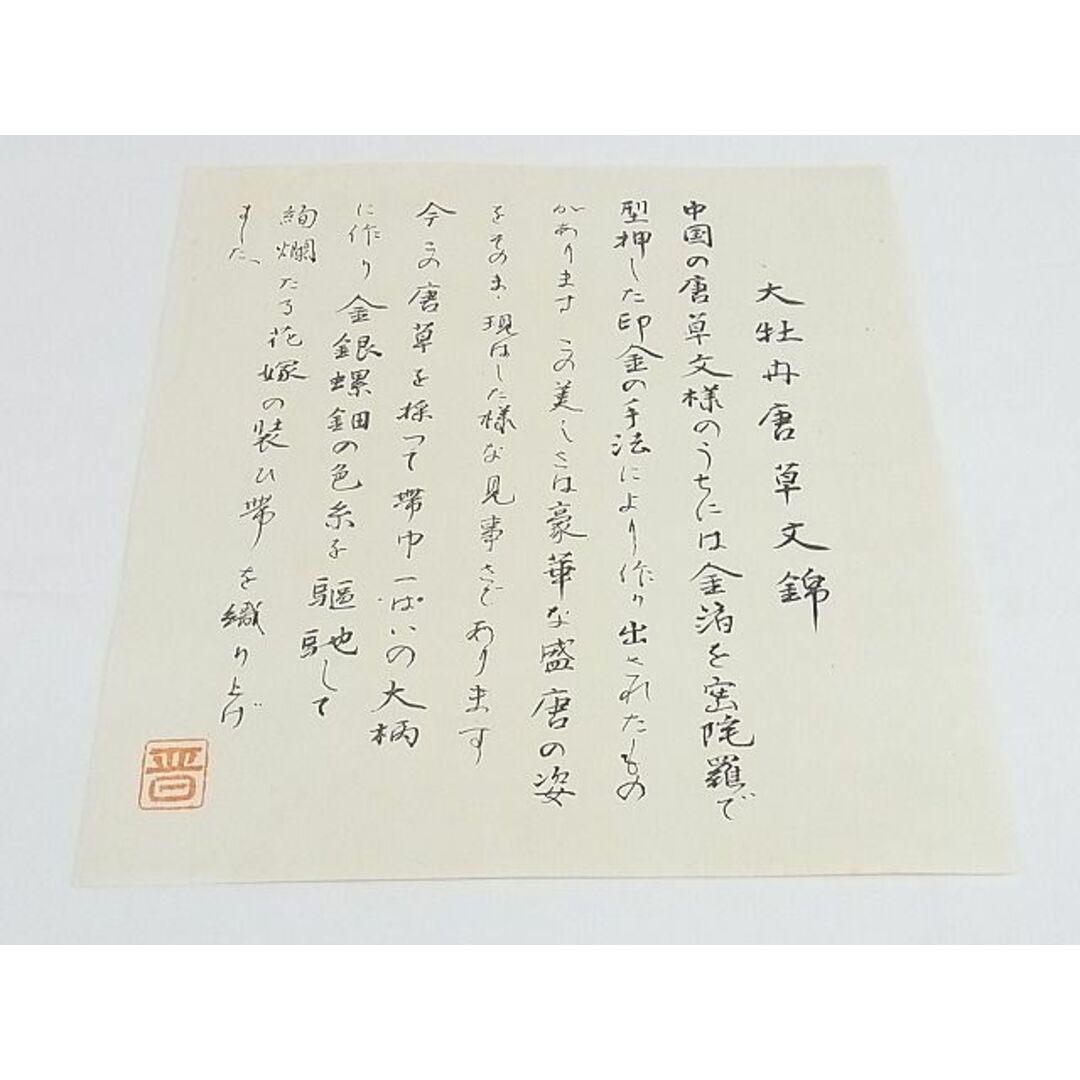 大牡丹唐草文錦
中国の唐草文様のうちには金箔を密陀羅で
型押した印金の手法により作り出されたもの
がありますこの美しさは豪華な盛唐の姿
をそのまゝ現はした様な見事さであります
今この唐草を採って帯巾一ぱいの大柄
に作り金銀螺鈿の色糸を驅馳して
絢爛たる花嫁の装ひ帯を織り上げ
ました
晋